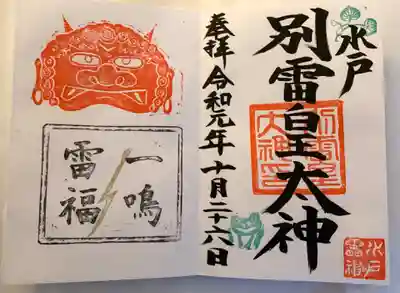 水戸
別雷皇太神
別雷皇太神印
水戸雷神
奉拝 令和元年十月二十六日
一鳴
雷福